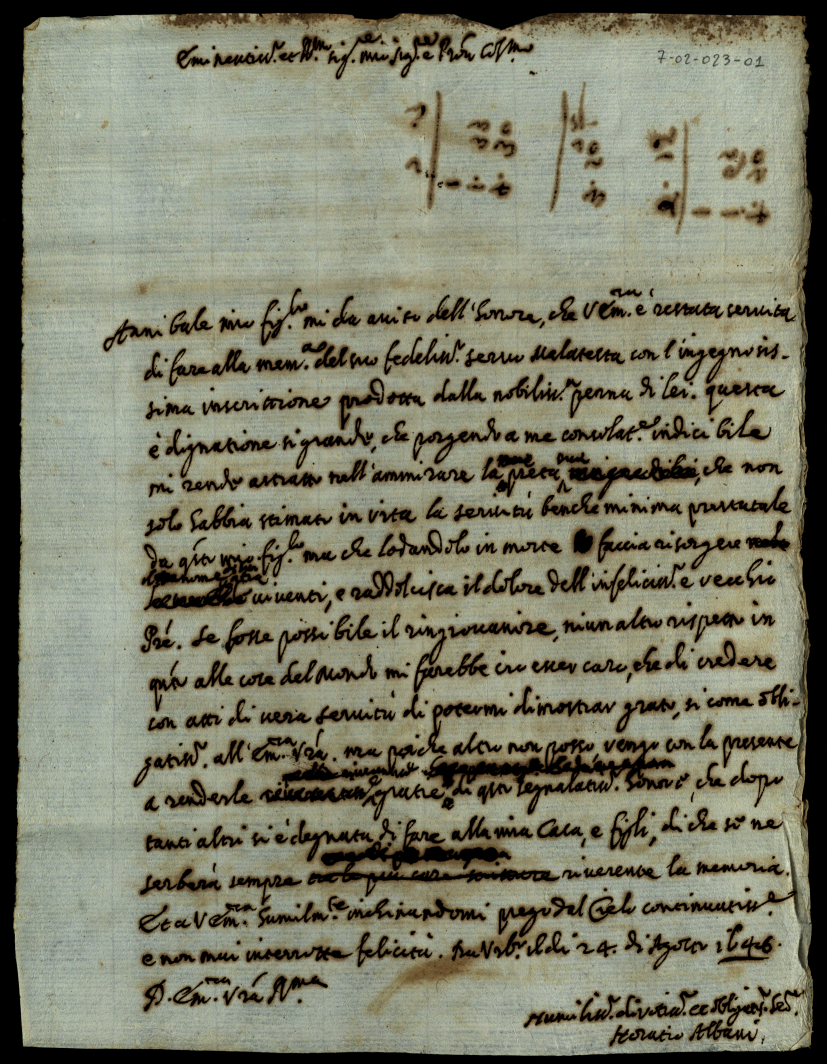 Eminentiss.º et R.mo Sig.re mio Sig.re e Pron Col.mo
7-02-023-01
Annibale mio fig.lo mi da auiso dell'honore, che V Em.za è restata seruita
di fare alla mem.a del suo fedeliss.º seruo Malatesta con l'ingegnosis-
sima inscrittione prodotta dalla nobiliss.a penna di lei. questa
è dignatione si grande, che porgendo a me consolat.e indicibile
mi rende astratto nell'ammirare la pietà, che non
solo habbia stimato in vita la seruitù benche minima prestatale
da q.to mio fig.lo ma che lodandolo in morte faccia risorgere
uiuenti, e raddolcisca il dolore dell'infeliciss.º e vecchio
Pré. Se fosse possibile il ringiouanire, niun altro rispetto in
q.to alle cose del Mondo mi farebbe cio esser caro, che di credere
con atti di uera seruitù di potermi dimostrar grato, si come obli-
gatiss.º all'Em.za Vra. ma poiche altro non posso, vengo con la presente
a renderle gratie di q.to segnalatiss.º honore, che dopo
tanti altri si è degnata di fare alla mia Casa, e figli, di che se ne
serberà sempre riuerente la memoria.
Et a V Em.za humilm.te inchinandomi prego dal Cielo continuatiss.e
e non mai interrotte felicità. Da Vrb.º il di 24. di Agosto 1646.
D. Em.za Vra R.ma
Humiliss.º diuotiss.º et obligatiss.º Se.re
Horatio Albani.